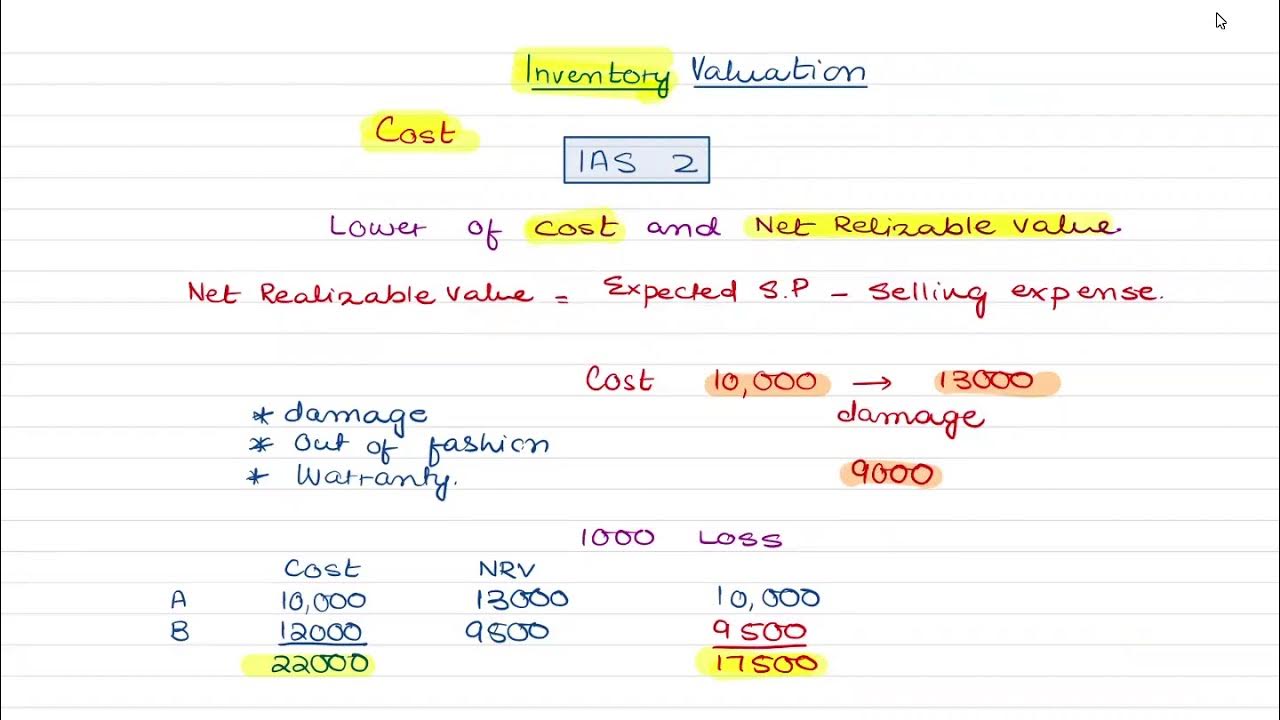 Inventory Valuation
Cost
IAS 2
Lower of cost and Net Relizable value.
Net Realizable value = Expected S.P - Selling expense.
Cost 10,000 → 13000
* damage
damage
* Out of fashion
* Warranty.
9000
1000 Loss
Cost NRV
A 10,000 13000 10,000
B 12000 9500 9500
22000 17500